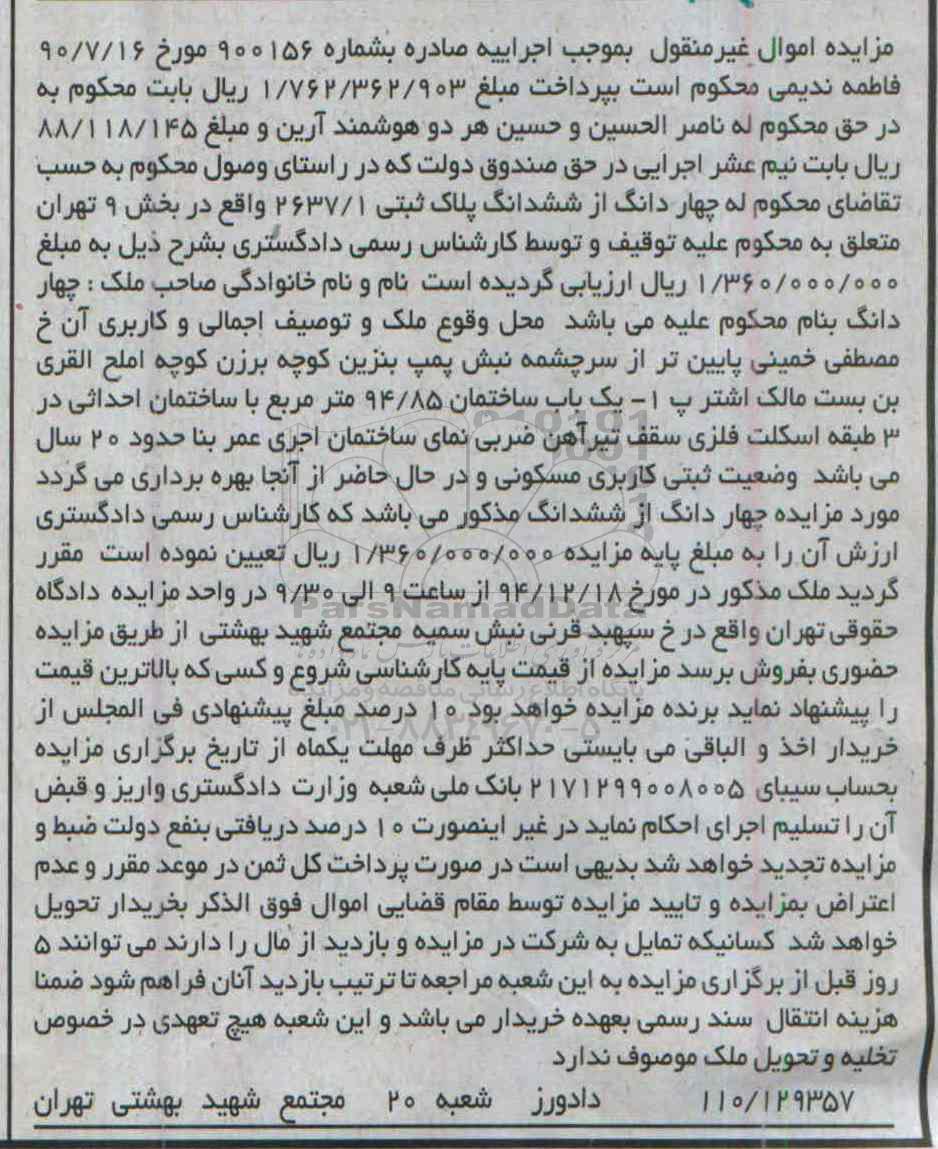 مزایده اموال غیرمنقول بموجب اجراییه صادره بشماره ۹۰۰۱۵۶ مورخ ۹۰/۷/۱۶
فاطمه ندیمی محکوم است بپرداخت مبلغ ۱/۷۶۲/۳۶۲/۹۰۳ ریال بابت محکوم به
در حق محکوم له ناصر الحسین و حسین هر دو هوشمند آرین و مبلغ ۸۸/۱۱۸/۱۴۵
ریال بابت نیم عشر اجرایی در حق صندوق دولت که در راستای وصول محکوم به حسب
تقاضای محکوم له چهار دانگ از ششدانگ پلاک ثبتی ۲۶۳۷/۱ واقع در بخش ۹ تهران
متعلق به محکوم علیه توقیف و توسط کارشناس رسمی دادگستری بشرح ذیل به مبلغ
۱/۳۶۰/۰۰۰/۰۰۰ ریال ارزیابی گردیده است نام و نام خانوادگی صاحب ملک : چهار
دانگ بنام محکوم علیه می باشد محل وقوع ملک و توصیف اجمالی و کاربری آن خ
مصطفی خمینی پایین تر از سرچشمه نبش پمپ بنزین کوچه برزن کوچه املح القری
بن بست مالک اشتر پ ۱- یک باب ساختمان ۹۴/۸۵ متر مربع با ساختمان احداثی در
۳ طبقه اسکلت فلزی سقف تیرآهن ضربی نمای ساختمان اجری عمر بنا حدود ۲۰ سال
می باشد وضعیت ثبتی کاربری مسکونی و در حال حاضر از آنجا بهره برداری می گردد
مورد مزایده چهار دانگ از ششدانگ مذکور می باشد که کارشناس رسمی دادگستری
ارزش آن را به مبلغ پایه مزایده ۱/۳۶۰/۰۰۰/۰۰۰ ریال تعیین نموده است مقرر
گردید ملک مذکور در مورخ ۹۴/۱۲/۱۸ از ساعت ۹ الی ۹/۳۰ در واحد مزایده دادگاه
حقوقی تهران واقع در خ سپهبد قرنی نبش سمیه مجتمع شهید بهشتی از طریق مزایده
حضوری بفروش برسد مزایده از قیمت پایه کارشناسی شروع و کسی که بالاترین قیمت
را پیشنهاد نماید برنده مزایده خواهد بود ۱۰ درصد مبلغ پیشنهادی فی المجلس از
خریدار اخذ و الباقی می بایستی حداکثر ظرف مهلت یکماه از تاریخ برگزاری مزایده
بحساب سیبای ۲۱۷۱۲۹۹۰۰۸۰۰۵ بانک ملی شعبه وزارت دادگستری واریز و قبض
آن را تسلیم اجرای احکام نماید در غیر اینصورت ۱۰ درصد دریافتی بنفع دولت ضبط و
مزایده تجدید خواهد شد بدیهی است در صورت پرداخت کل ثمن در موعد مقرر و عدم
اعتراض بمزایده و تایید مزایده توسط مقام قضایی اموال فوق الذکر بخریدار تحویل
خواهد شد کسانیکه تمایل به شرکت در مزایده و بازدید از مال را دارند می توانند ۵
روز قبل از برگزاری مزایده به این شعبه مراجعه تا ترتیب بازدید آنان فراهم شود ضمنا
هزینه انتقال سند رسمی بعهده خریدار می باشد و این شعبه هیچ تعهدی در خصوص
تخلیه و تحویل ملک موصوف ندارد
۱۱۰/۱۲۹۳۵۷ دادورز شعبه ۲۰ مجتمع شهید بهشتی تهران
ParsNamadData
پایگاه اطلاع رسانی مناقصه و مزایده